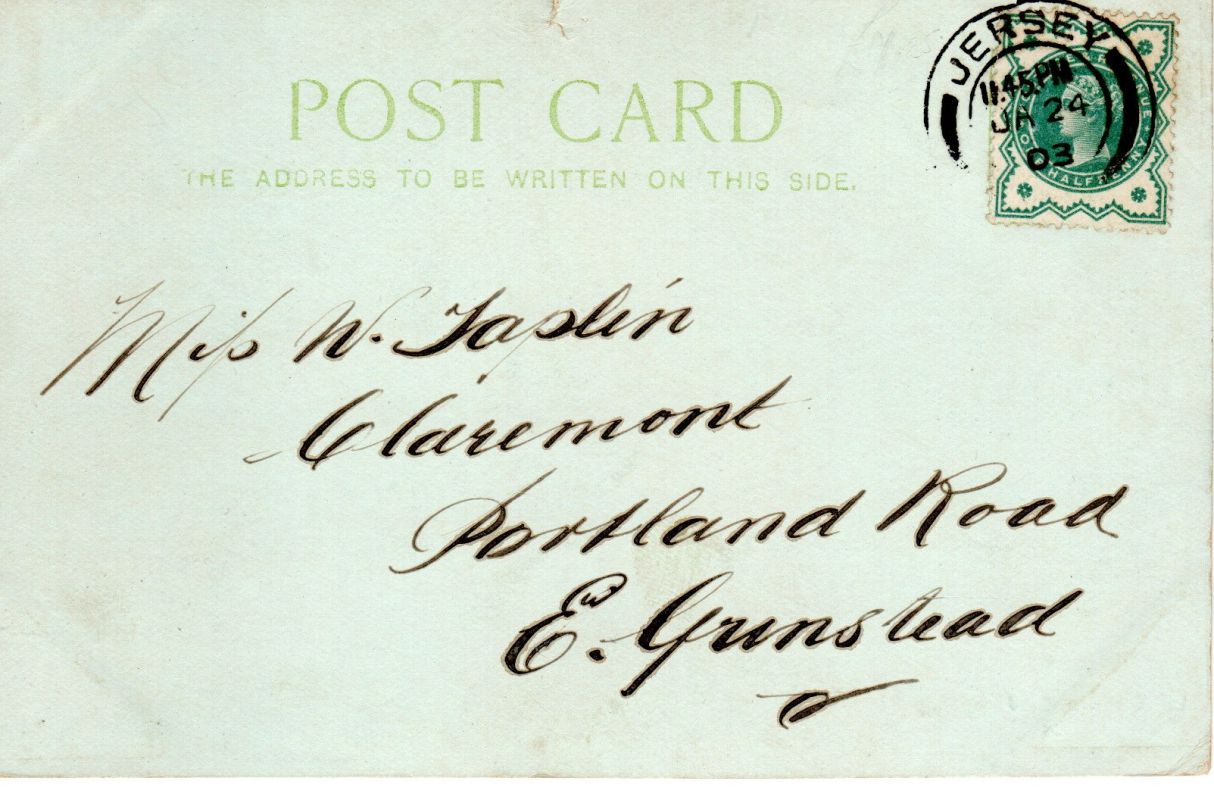 POST CARD
THE ADDRESS TO BE WRITTEN ON THIS SIDE.
JERSEY
11.45.PM
JA 24
03
HALFPENNY
Miss W. Taplin
Claremont
Portland Road
E. Grinstead